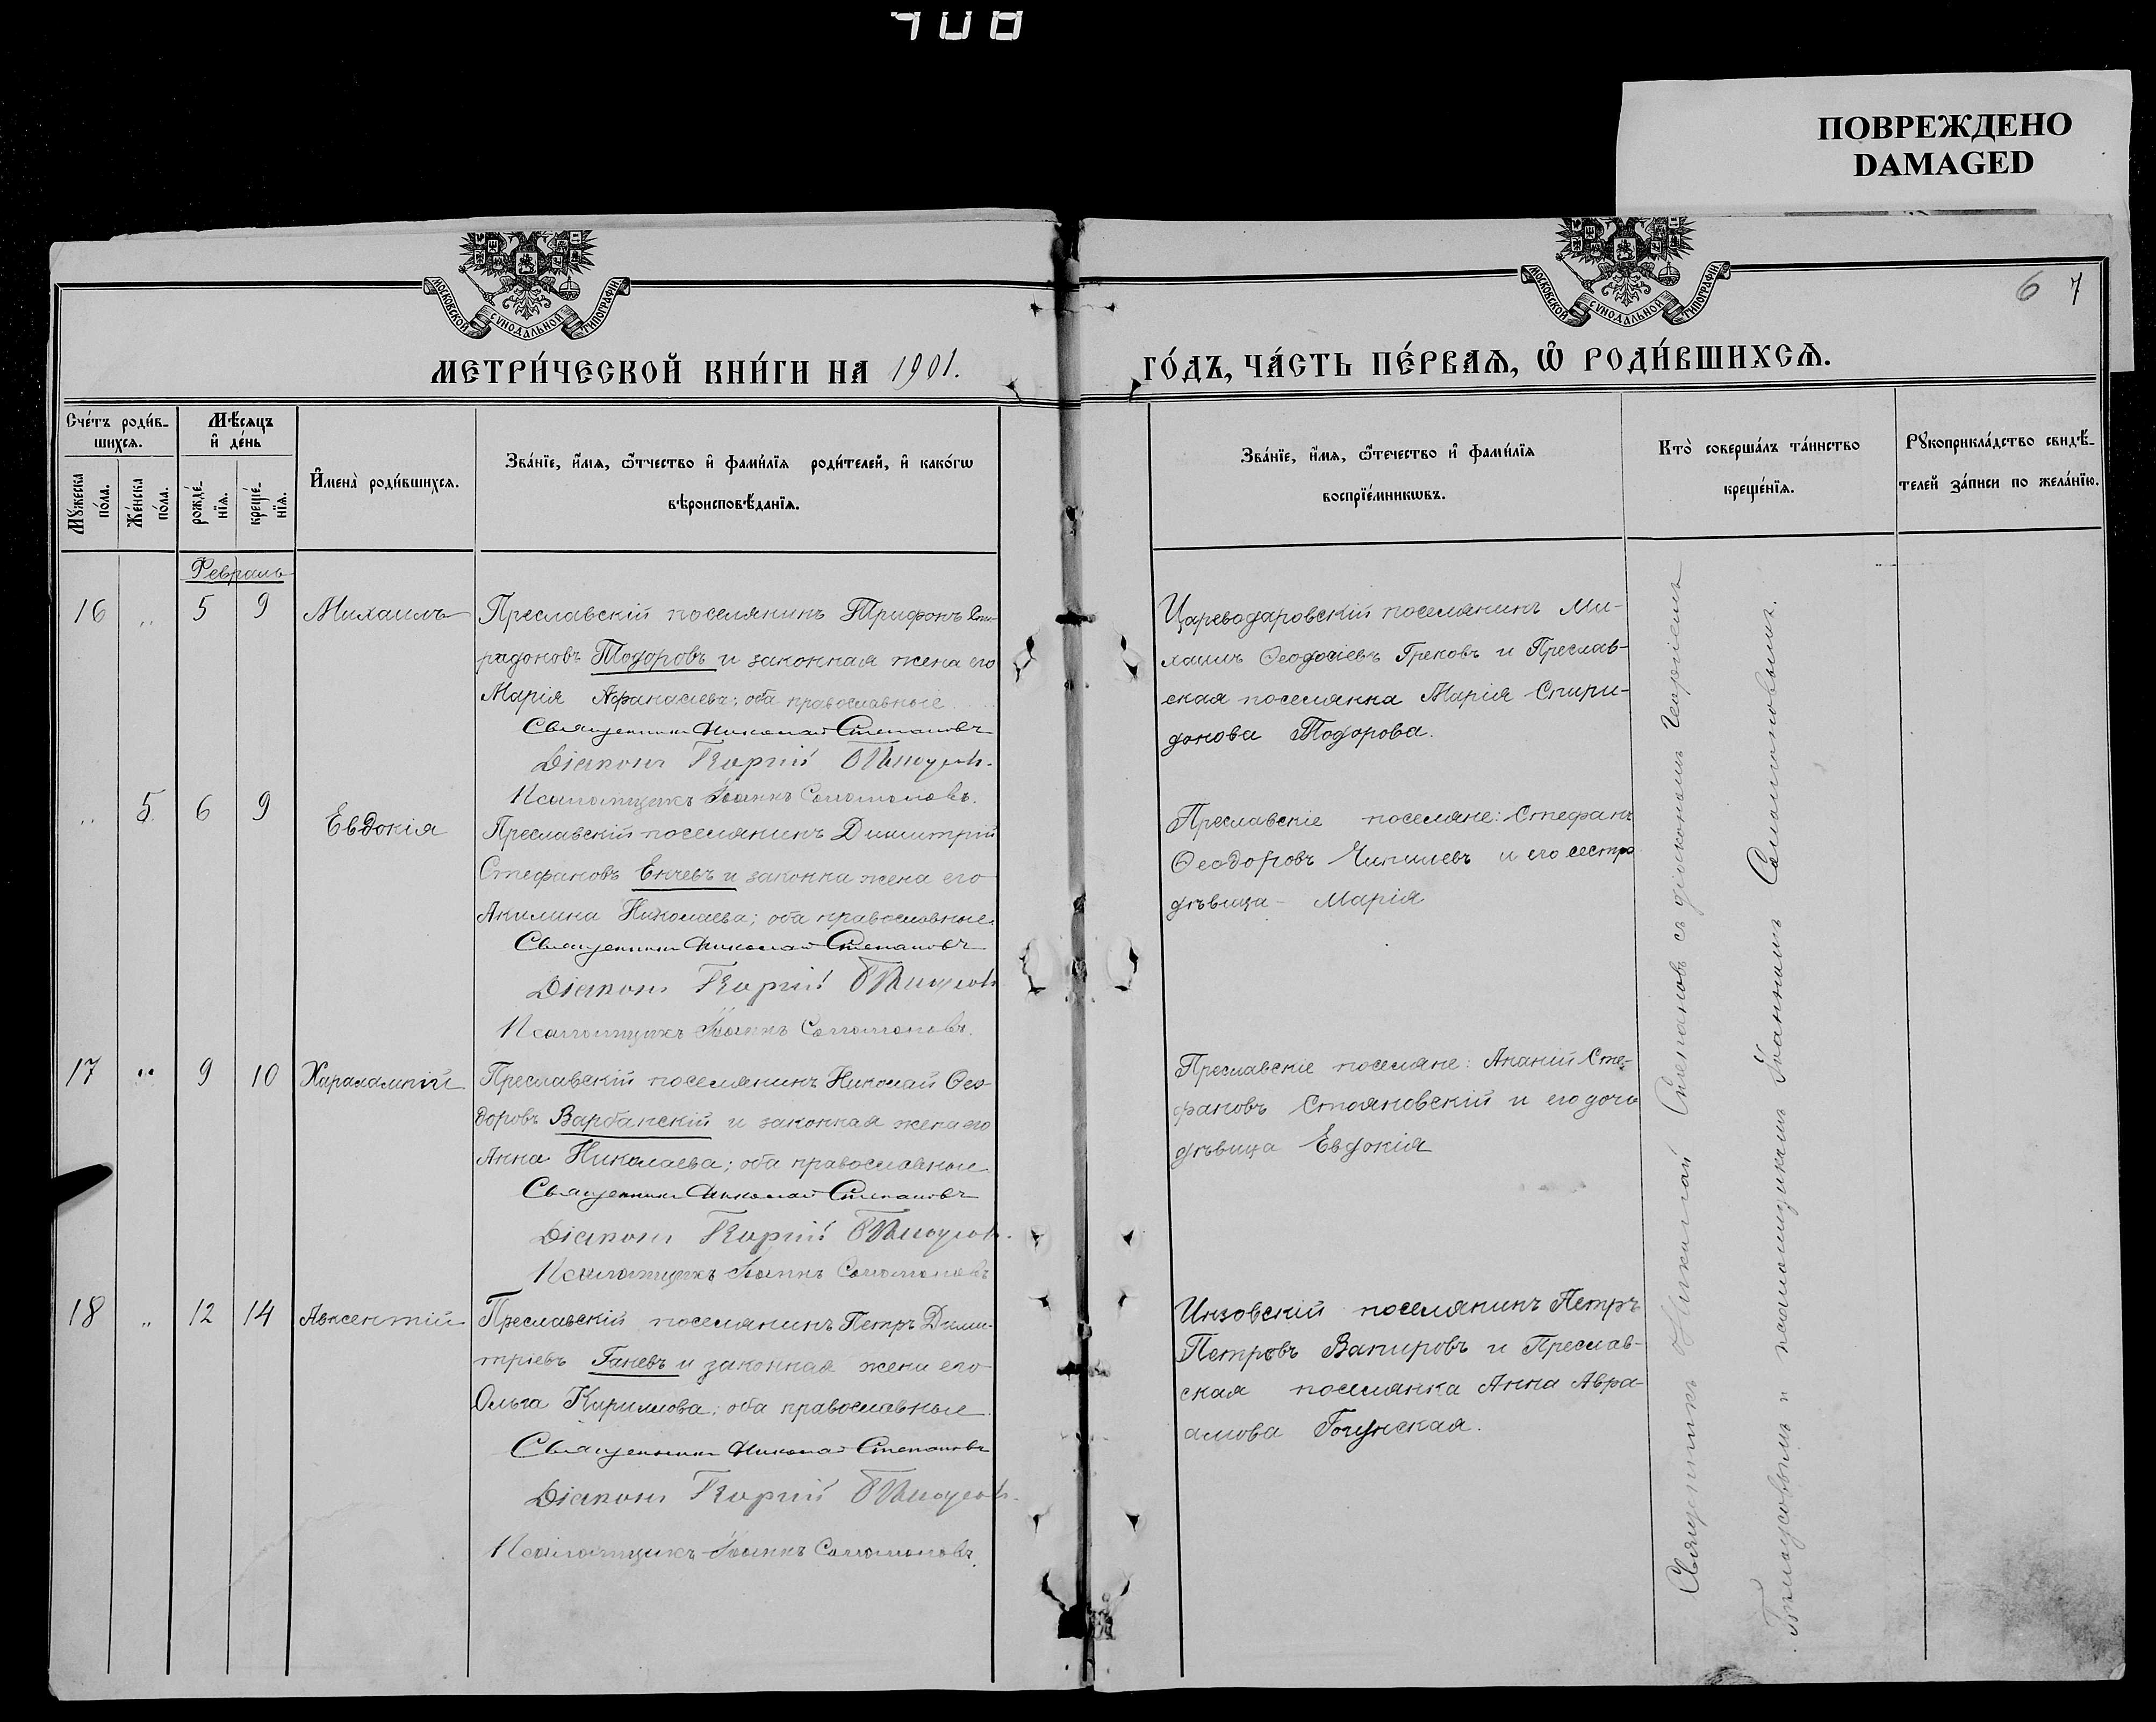 ПОВРЕЖДЕНО
DAMAGED
МОСКОВСКОЙ СУНОДАЛЬНОЙ ТИПОГРАФІИ
МОСКОВСКОЙ СУНОДАЛЬНОЙ ТИПОГРАФІИ
6 7
МЕТРИ́ЧЕСКОЙ КНИ́ГИ НА 1901.
ГО́ДЪ, ЧА́СТЬ ПЕ́РВАѦ, Ѿ РОДИ́ВШИХСѦ.
Сче́тъ роди́в-
шихсѧ.
Мꙋжеска
по́ла.
Же́нска
по́ла.
Мѣ́сѧцъ
и҆ де́нь
рожде́-
нїѧ.
креще́-
нїѧ.
И҆мена̀ роди́вшихсѧ.
Зва́нїе, и҆́мѧ, ѻ҆́тчество и҆ фами́лїѧ роди́телей, и҆ како́гѡ
вѣроисповѣ́данїѧ.
Зва́нїе, и҆́мѧ, ѻ҆те́чество и҆ фами́лїѧ
воспрїе́мникѡвъ.
Кто̀ соверша́лъ та́инство
креще́нїѧ.
Рꙋкоприкла́дство свидѣ́-
телей за́писи по жела́нїю.
Февраль
16 „ 5 9 Михаилъ
Преславскій поселянинъ Трифонъ Спи-
ридоновъ Тодоровъ и законная жена его
Марія Афанасіева; оба православные
Священникъ Николай Степановъ
Діаконъ
Псаломщикъ Іоаннъ Соломоновъ.
Цареводаровскій поселянинъ Ми-
хаилъ Ѳеодосіевъ Грековъ и Преслав-
ская поселянка Марія Спири-
донова Тодорова.
„ 5 6 9 Евдокія
Преславскій поселянинъ Димитрій
Стефановъ Енчевъ и законна жена его
Акилина Николаева; оба православные.
Священникъ Николай Степановъ
Діаконъ
Псаломщикъ Іоаннъ Соломоновъ.
Преславскіе поселяне: Стефанъ
Ѳеодоровъ Чипилевъ и его сестра
дѣвица - Марія
17 „ 9 10 Харалампій
Преславскій поселянинъ Николай Ѳео-
доровъ Варбанскій и законная жена его
Анна Николаева; оба православные
Священникъ Николай Степановъ
Діаконъ
Псаломщикъ Іоаннъ Соломоновъ
Преславскіе поселяне: Ананій Сте-
фановъ Стояновскій и его дочь
дѣвица Евдокія
18 „ 12 14 Авксентій
Преславскій поселянинъ Петръ Дими-
тріевъ Ганевъ и законная жена его
Ольга Кириллова; оба православные
Священникъ Николай Степановъ
Діаконъ
Псаломщикъ Іоаннъ Соломоновъ.
Инзовскій поселянинъ Петръ
Петровъ Вапировъ и Преслав-
ская поселянка Анна Авра-
амова
Священникъ Николай Степановъ съ діакономъ Георгіемъ
и псаломщикомъ Іоанномъ Соломоновымъ.